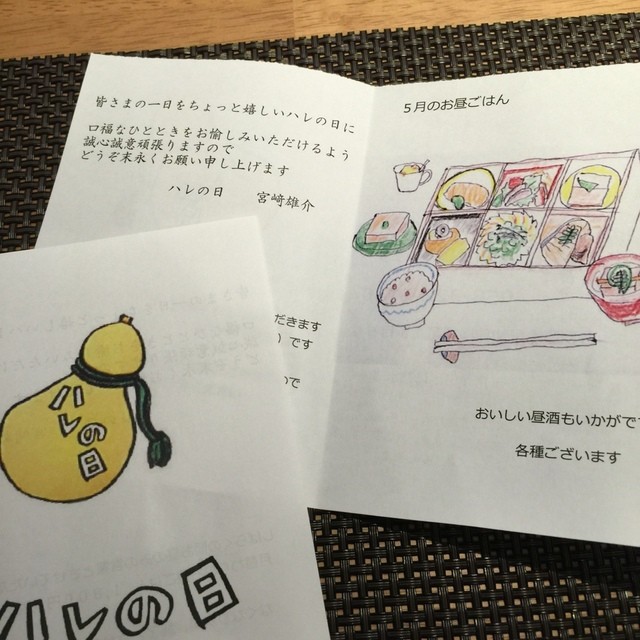 皆さまの一日をちょっと嬉しいハレの日に
口福なひとときをお愉しみいただけるよう
誠心誠意頑張りますので
どうぞ末永くお願い申し上げます
ハレの日 宮崎雄介
だきます
）です
で
5月のお昼ごはん
おいしい昼酒もいかがで
各種ございます
ハレの日
ハレの日